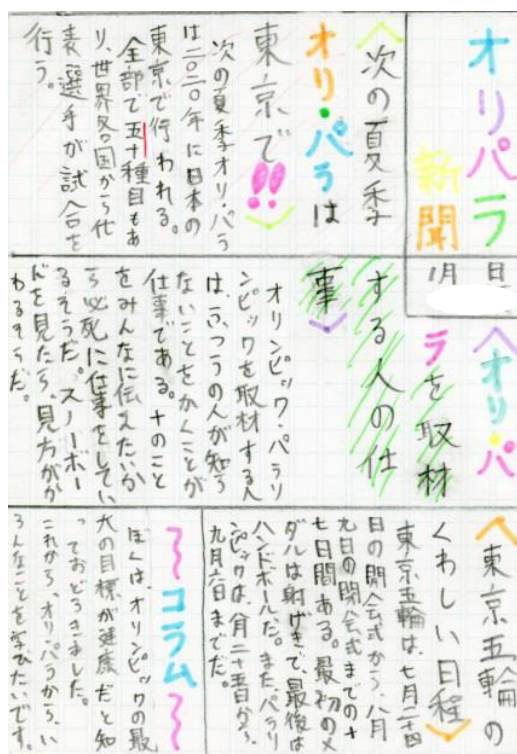 オリパラ
新聞
1月 日
〈次の夏季
オリ・パラは
東京で!!〉
次の夏季オリ・パラ
は二〇二〇年に日本の
東京で行われる。
全部で五十種目もあ
り、世界各国から代
表選手が試合を
行う。
〈オリ・パ
ラを取材
する人の仕
事〉
オリンピック・パラリ
ンピックを取材する人
は、ふつうの人が知ら
ないことをかくことが
仕事である。そのこと
をみんなに伝えたいか
ら必死に仕事をしてい
るそうだ。スノーボー
ドを見たら、見方がか
わるそうだ。
〈東京五輪の
くわしい日程〉
東京五輪は、七月二十四
日の開会式から、八月
九日の閉会式までの十
七日間ある。最初のメ
ダルは射げきで、最後は
ハンドボールだ。またパラリ
ンピックは、八月二十五日から、
九月六日までだ。
〜コラム〜
ぼくは、オリンピックの最
大の目標が健康だと知
っておどろきました。
これから、オリ・パラから、い
ろんなことを学びたいです。